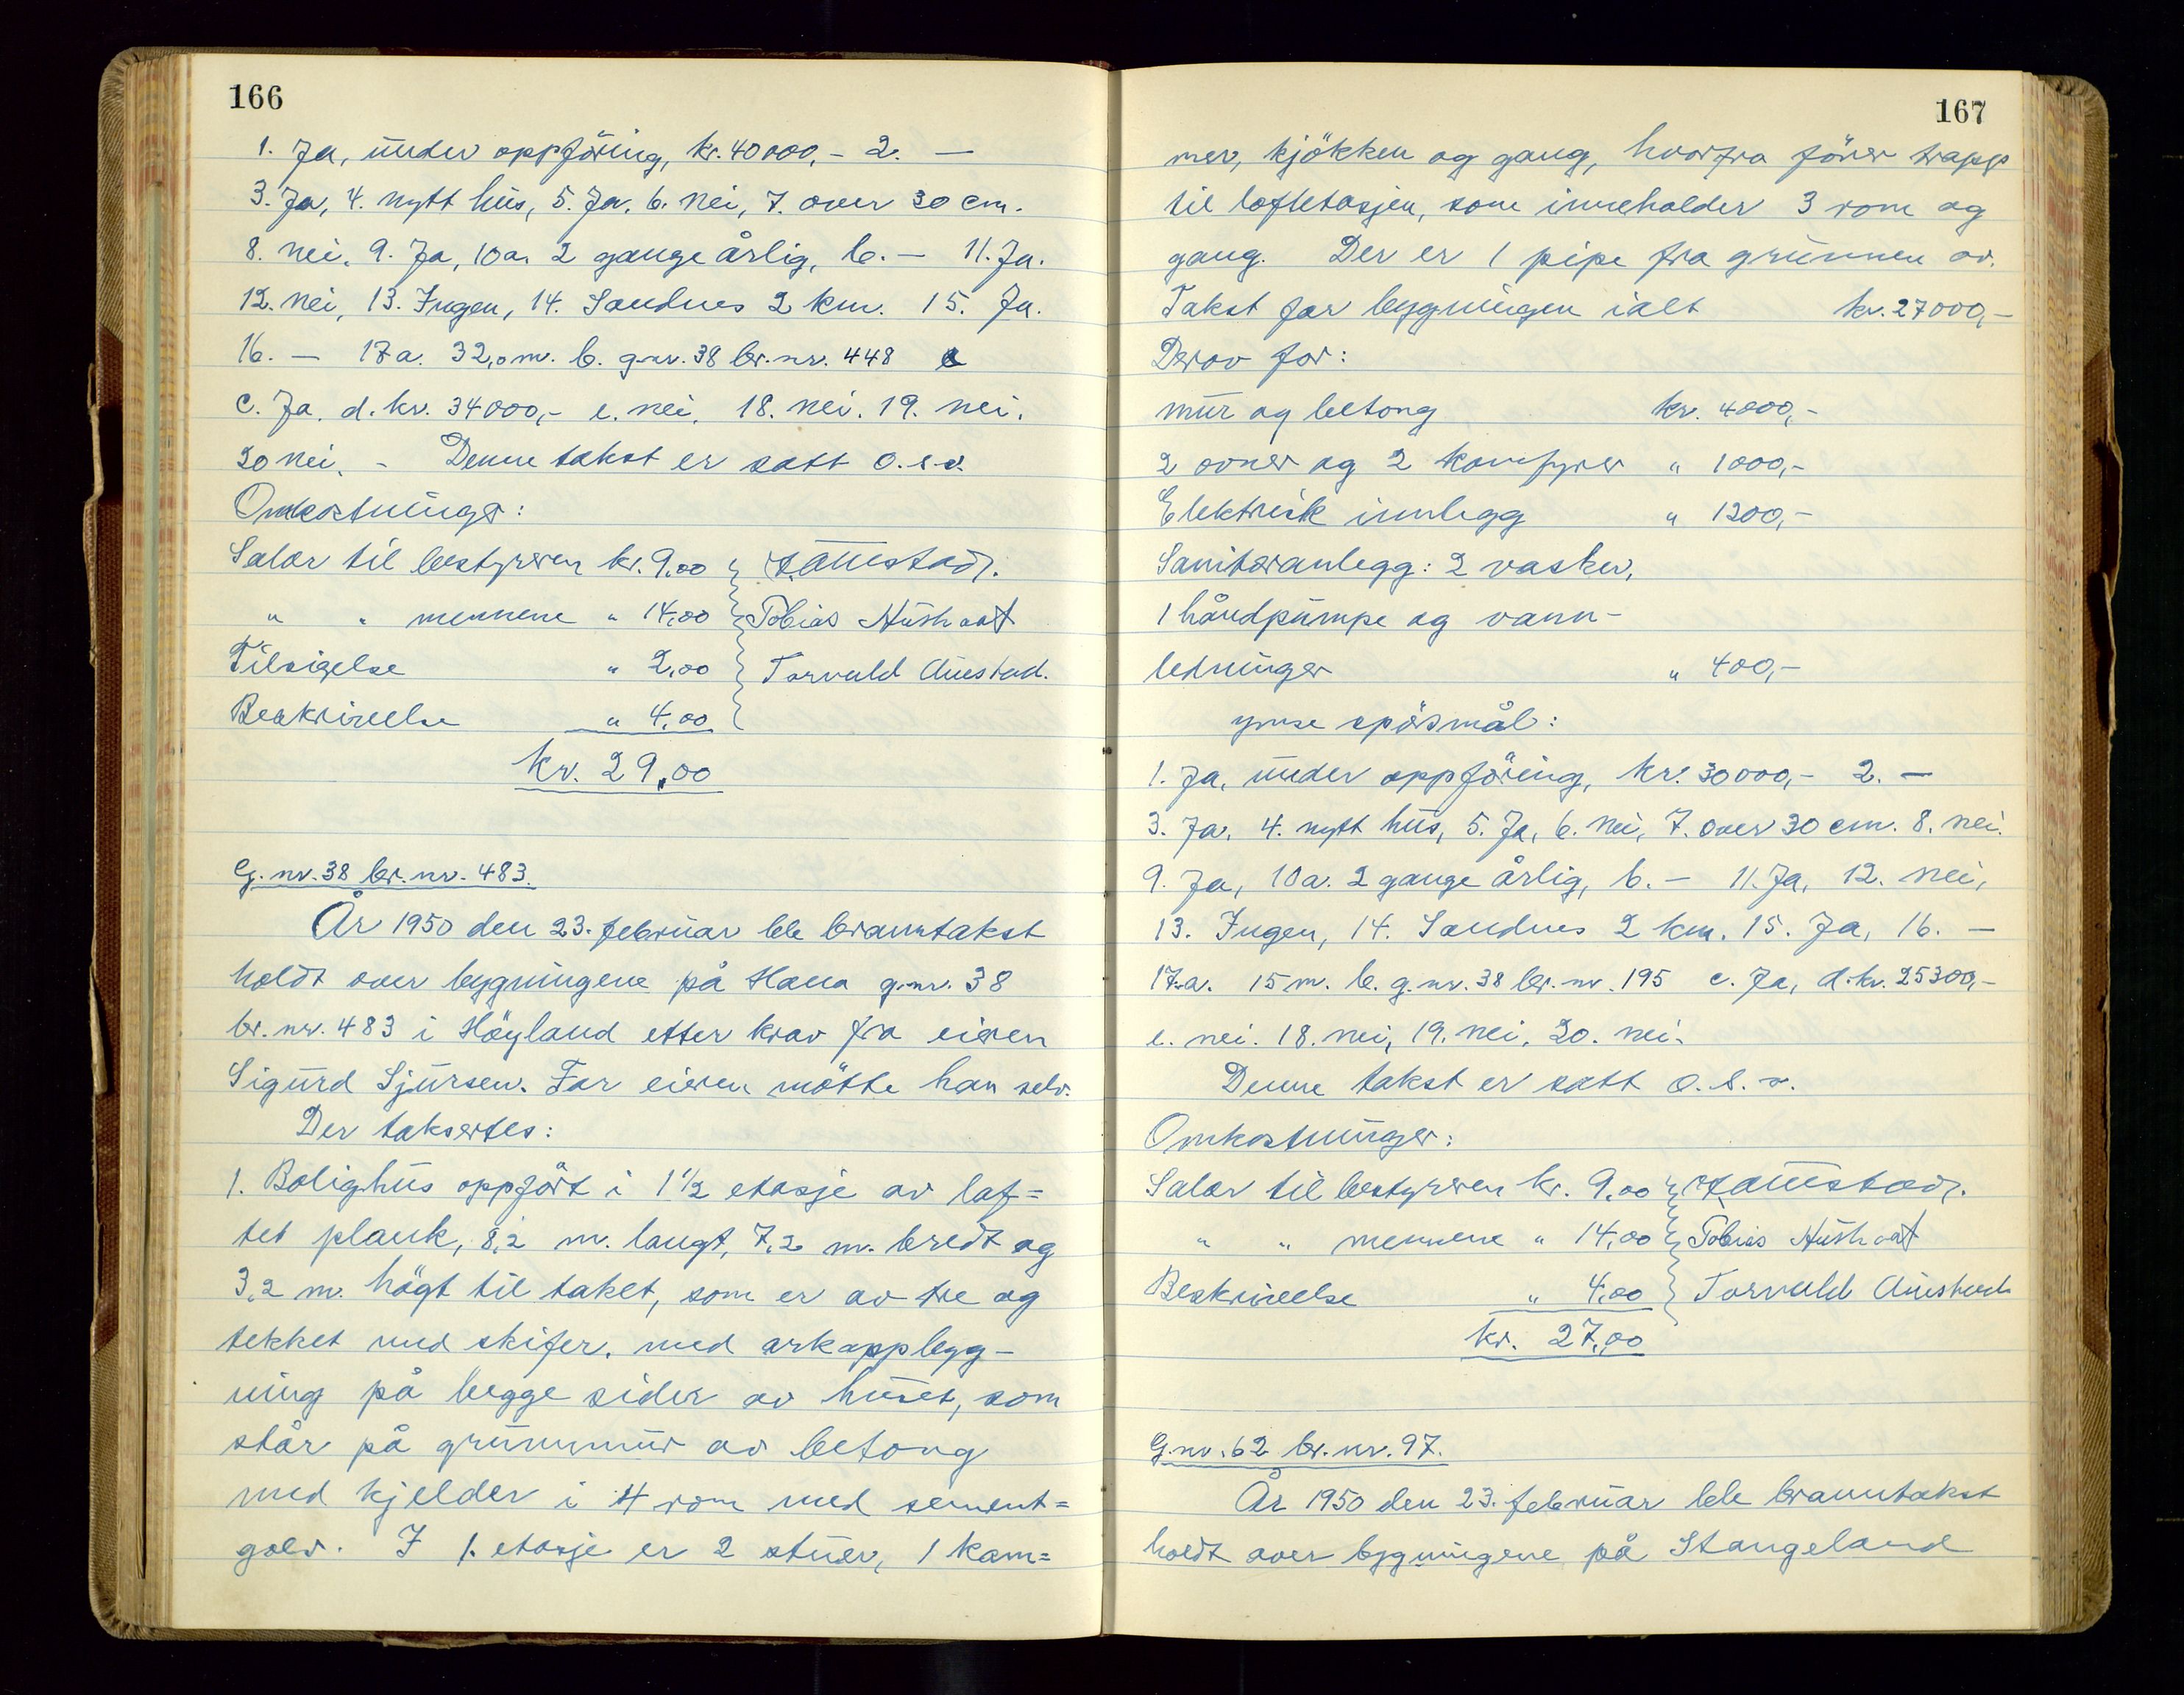 166
1. Ja, under oppföring, kr. 40000,- 2. —
3. Ja, 4. nytt hus, 5. Ja. 6. nei, 7. over 30 cm.
8. nei. 9. Ja, 10a. 2 gange årlig, b. — 11. Ja.
12. nei, 13. Ingen, 14. Sandnes 2 km. 15. Ja.
16. — 17a. 32,0 m. b. g.nr. 38 br.nr. 448
c. Ja. d. kr. 34000,- e. nei. 18. nei. 19. nei.
20 nei. - Denne takst er satt o.s.v.
Omkostninger:
Salær til bestyreren kr. 9.00
" " mennene " 14.00 Tobias Hushovt
Tilsigelse " 2.00 Torvald Austad.
Beskrivelse " 4.00
kr. 29,00
G.nr. 38 br.nr. 483.
År 1950 den 23. februar ble branntakst
holdt over bygningene på Hana g.nr. 38
br.nr. 483 i Höyland etter krav fra eieren
Sigurd Sjursen. For eieren mötte han selv.
Der taksertes:
1. Bolighus oppfört i 1 1/2 etasje av laf=
tet plank, 8,2 m. langt, 7,2 m. bredt og
3,2 m. högt til taket, som er av tre og
tekket med skifer. med arkopplegg-
ning på begge sider av huset, som
står på grunnmur av betong
med kjelder i 4 rom med sement=
golv. I 1. etasje er 2 stuer, 1 kam=
167
mer, kjökken og gang, hvorfra förer trapp
til loftetasjen, som inneholder 3 rom og
gang. Der er 1 pipe fra grunnen av.
Takst for bygningen ialt kr. 27000,-
Derav for:
mur og betong kr. 4000,-
2 ovner og 2 komfyrer " 1000,-
Elektrisk innlegg " 1200,-
Sanitæranlegg: 2 vasker,
1 håndpumpe og vann-
ledninger " 400,-
ymse spörsmål:
1. Ja, under oppföring, kr. 30000,- 2. —
3. Ja, 4. nytt hus, 5. Ja, 6. nei, 7. over 30 cm. 8. nei.
9. Ja, 10a. 2 gange årlig, b. — 11. Ja, 12. nei,
13. Ingen, 14. Sandnes 2 km. 15. Ja, 16. —
17.a. 15 m. b. g.nr. 38 br.nr. 195 c. Ja, d. kr. 25300,-
e. nei. 18. nei, 19. nei. 20. nei.
Denne takst er satt o.s.v.
Omkostninger:
Salær til bestyreren kr. 9,00
" " mennene " 14,00 Tobias Hushovt
Beskrivelse " 4,00 Torvald Austad
kr. 27,00
G.nr. 62 br.nr. 97.
År 1950 den 23. februar ble branntakst
holdt over bygningene på Stangeland